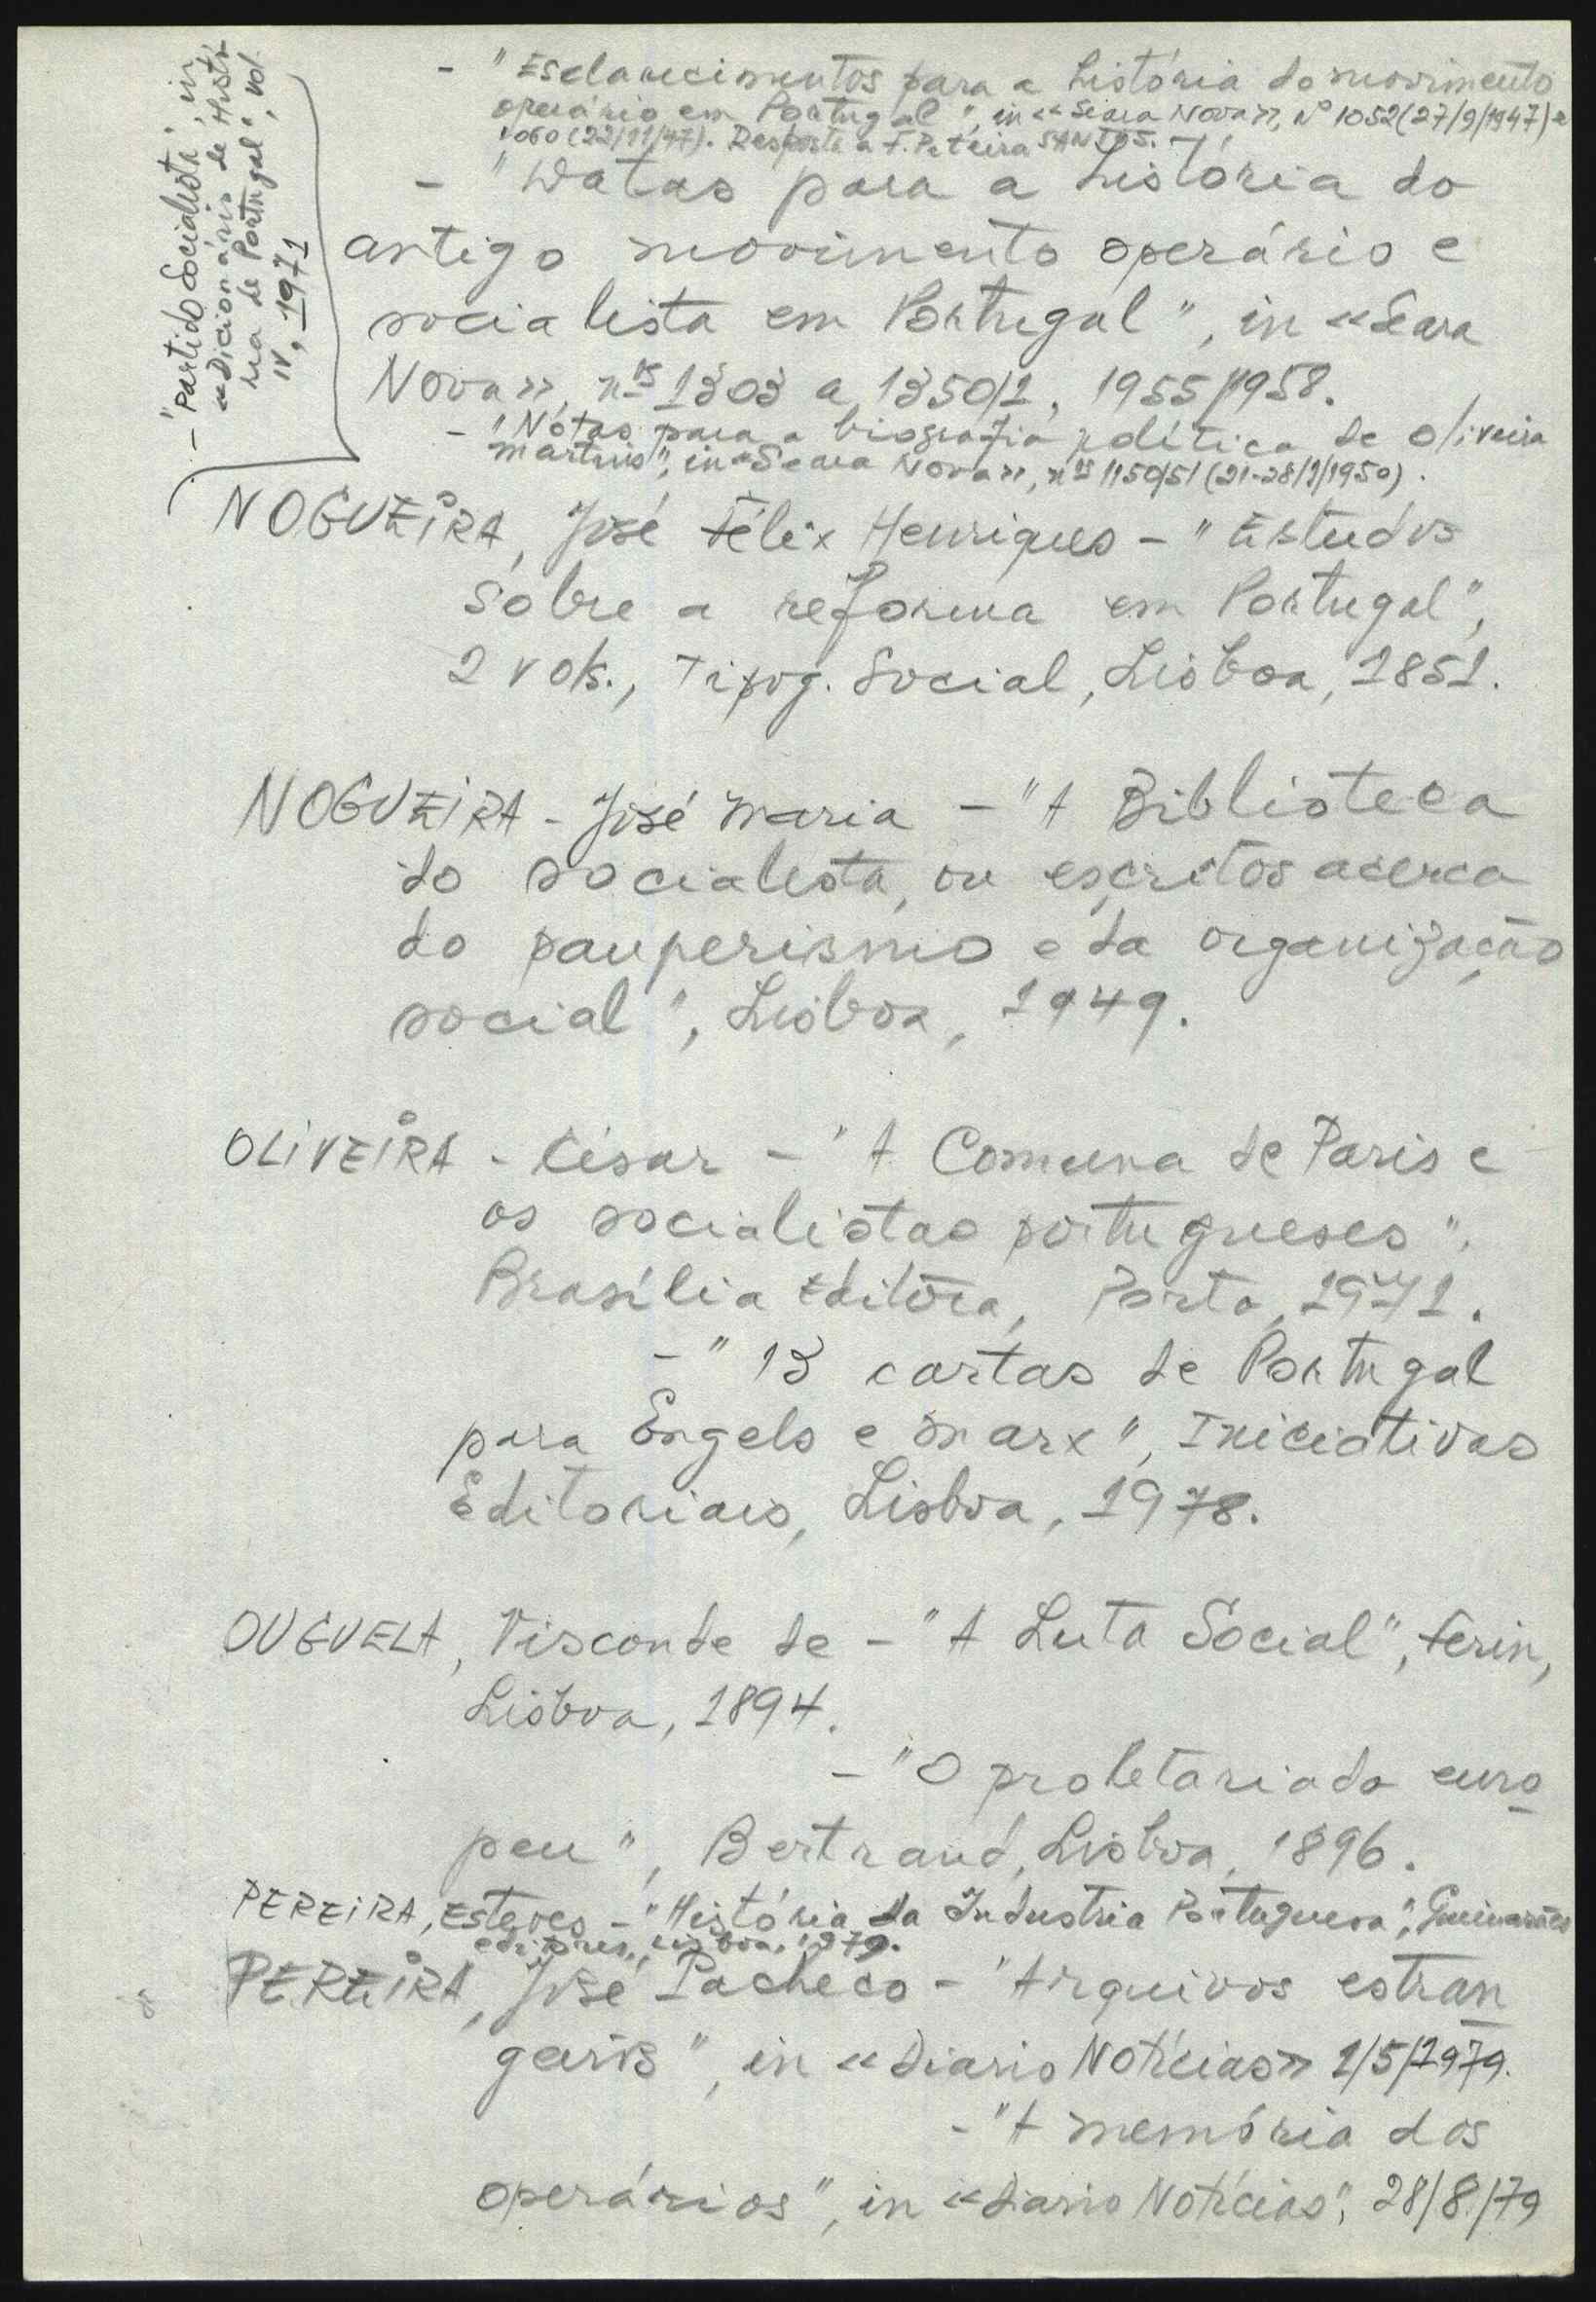 - "Esclarecimentos para a história do movimento
operário em Portugal", in «Seara Nova», Nº 1052 (27/9/1947) e
1060 (22/11/47). Resposta a F. Piteira SANTOS.
- "Datas para a história do
antigo movimento operário e
socialista em Portugal", in «Seara
Nova», nos 1303 a 1350/1, 1955/1958.
- "Notas para a biografia política de Oliveira
Martins", in «Seara Nova», nos 1150/51 (21-28/1/1950).
- "Partido Socialista", in
«Dicionário de Histó-
ria de Portugal", vol.
IV, 1971
NOGUEIRA, José Félix Henriques - "Estudos
sobre a reforma em Portugal",
2 vols., Tipog. Social, Lisboa, 1851.
NOGUEIRA - José Maria - "A Biblioteca
do socialista, ou escritos acerca
do pauperismo e da organização
social", Lisboa, 1949.
OLIVEIRA - César - "A Comuna de Paris e
os socialistas portugueses",
Brasília Editora, Porto, 1971.
- "13 cartas de Portugal
para Engels e Marx", Iniciativas
Editoriais, Lisboa, 1978.
OUGUELA, Visconde de - "A Luta Social", Ferin,
Lisboa, 1894.
- "O proletariado euro
peu", Bertrand, Lisboa, 1896.
PEREIRA, Esteves - "História da Industria Portuguesa", Guimarães
editores, Lisboa, 1979.
PEREIRA, José Pacheco - "Arquivos estran
geiros", in «Diario Notícias» 1/5/1979.
- "A memória dos
operários", in «Diario Notícias", 28/8/79